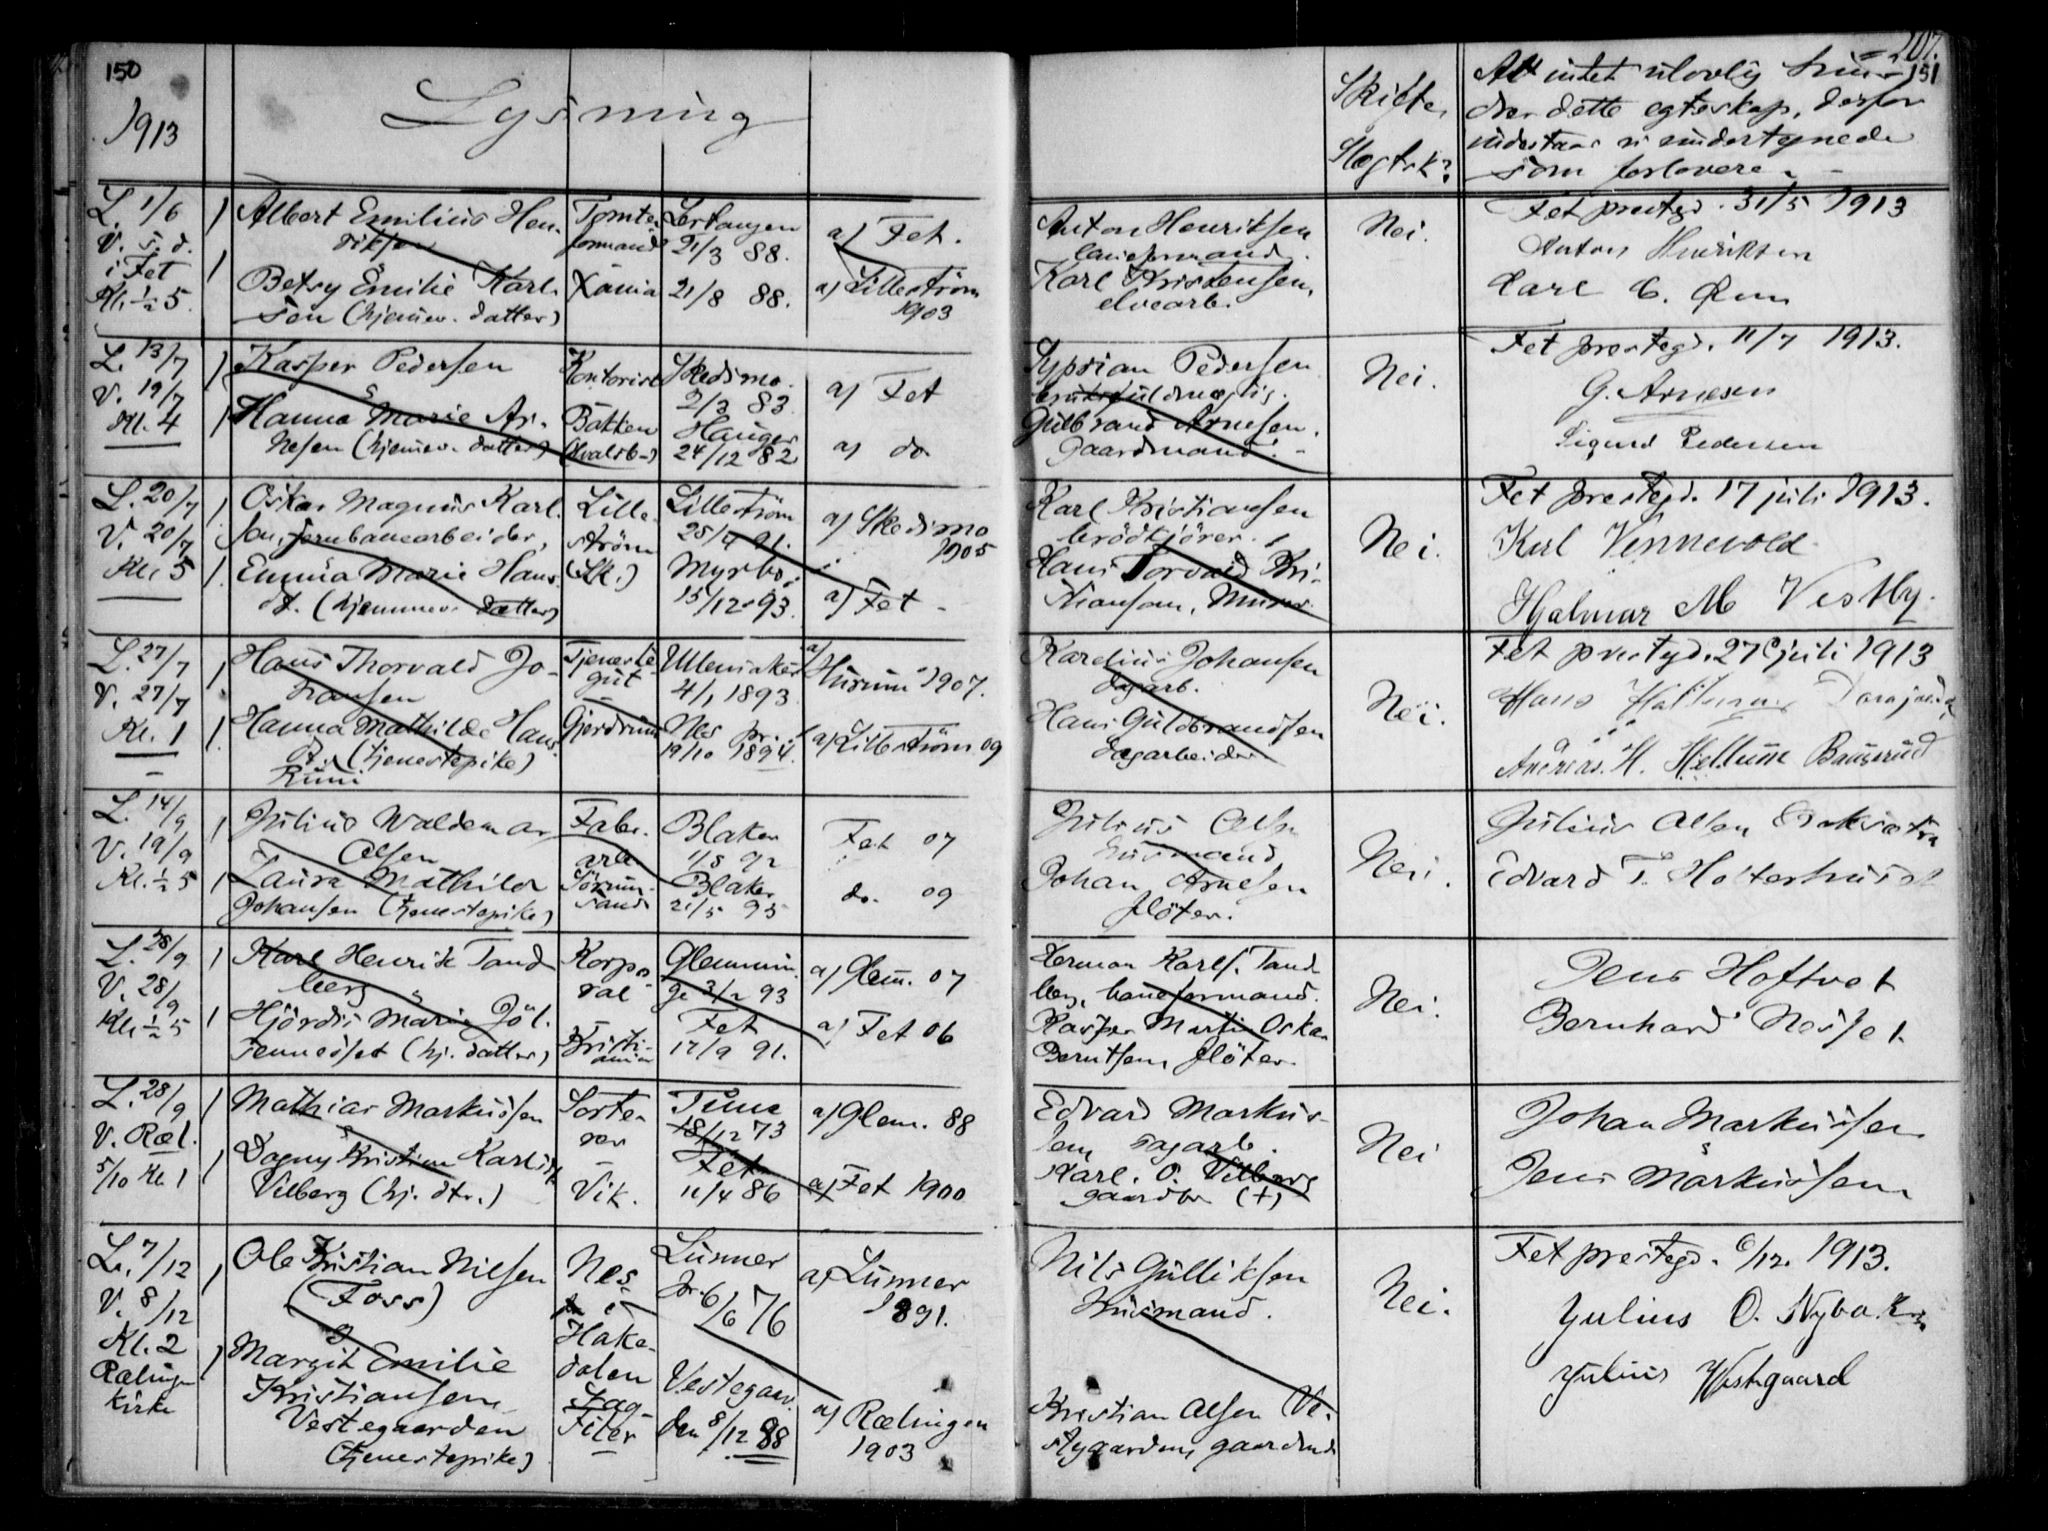 150
1913
Lysning
Skifte,
Slegtsk?
207.
151
At intet ulovlig hin-
drer dette egteskap, derfor
indestaar vi undertegnede
som forlovere.
L. 1/6
V. s. d.
i Fet
Kl. ½ 5.
1
1
Albert Emilius Hen-
riksen
Betsy Emilie Karl-
sen (hjemmev. datter)
Tomte
formand
Xania
Lertangen
21/3 88.
21/8 88.
a) Fet.
a) Lillestrøm
1903
Anton Henriksen
Karl Kristensen,
elvearb.
Nei.
Fet prestegd. 31/5 1913
Anton Henriksen
Karl C.
L. 13/7
V. 19/7
Kl. 4
1
1
Kasper Pedersen
Hanna Marie Ar-
nesen (hjemmev. datter)
Kontorist
Bakken
Skedsmo.
2/3 83.
Hauger
24/12 82
a) Fet
a) do
Syprian Pedersen
Gulbrand Arnesen.
Gaardmand.
Nei.
Fet prestegd. 11/7 1913.
G. Arnesen
Sigurd Pedersen
L. 20/7
V. 20/7
Kl. 5
1
1.
Oskar Magnus Karl-
sen, jernbanearbeider,
Emma Marie Hans-
dt. (hjemmev. datter)
Lille-
strøm
(Sk.)
Lillestrøm
25/4 91.
Myrbo
15/12 93.
a) Skedsmo
1905
a) Fet
Karl Kristiansen
brödkjörer.
Hans Torvald Kri-
stiansen, Murer.
Nei.
Fet prestegd. 17 juli 1913.
Karl Vennevold
Hjalmar M Vestby.
L. 27/7
V. 27/7
Kl. 1
1
1.
Hans Thorvald Jo-
hansen
Hanna Mathilde Hans-
d. (tjenestepike)
Tjeneste-
gut
Gjerdrum
Ullensaker
4/1 1893
Nes pr.
19/10 1894.
a) Hurum 1907.
a) Lillestrøm 09
Karelius Johansen
dagarb.
Hans Guldbrandsen
Dagarbeider
Nei.
Fet prestegd. 27 juli 1913
Hans
Andreas. H. Hellum
L. 14/9
V. 19/9
Kl. ½ 5
1
1
Julius Waldemar
Olsen
Laura Mathilde
Johansen (tjenestepike)
Fabr.
arb
Sørum-
sand
Blaker
1/8 92
Blaker
21/5 95
Fet 07
do. 09
Julius Olsen
Husmand
Johan Arnesen
flöter.
Nei.
Julius Olsen
Edvard T.
L. 28/9
V. 28/9
Kl. ½ 5
1
1
Karl Henrik Tand-
berg
Hjördis Marie Jöl-
sennesset (hj. datter)
Korpo-
ral
Kristi-
ania
Glemmin-
ge 3/2 93
Fet
17/9 91.
a) Glem. 07
a) Fet 06
Herman Karls. Tand-
berg, baneformand.
Kasper Martin Oskar
Berntsen, flöter.
Nei.
Jens Hoftvet
Bernhard Nesset.
L. 28/9
V. Ræl.
5/10 Kl. 1
1
1
Mathias Markussen
Dagny Kristine Karlsd
Vilberg (hj. dtr.)
Sorte-
rer
Vik.
Tune
18/12 73
Fet
11/4 86
a) Glem. 88
a) Fet 1900
Edvard Markus-
sen, sagarb.
Karl. O. Vilberg
gaardbr (+)
Nei
Johan Markussen
Jens Markussen
L. 7/12
V. 8/12
Kl. 2
Rælingen
Kirke
1
1
Ole Kristian Nilsen
(Foss)
Margit Emilie
Kristiansen
Vestegaarden
(tjenestepike)
Nes
i
Hake-
dalen
Fiter
Lunner
pr. 6/6 76
Vestegaar-
den 8/12 88
a) Lunner
1891.
a) Rælingen
1903
Nils Gulliksen
Husmand.
Kristian Olsen Ve-
stegaarden, gaardmd
Nei.
Fet prestegd. 6/12. 1913.
Julius O. Nybakk
Julius Westgaard